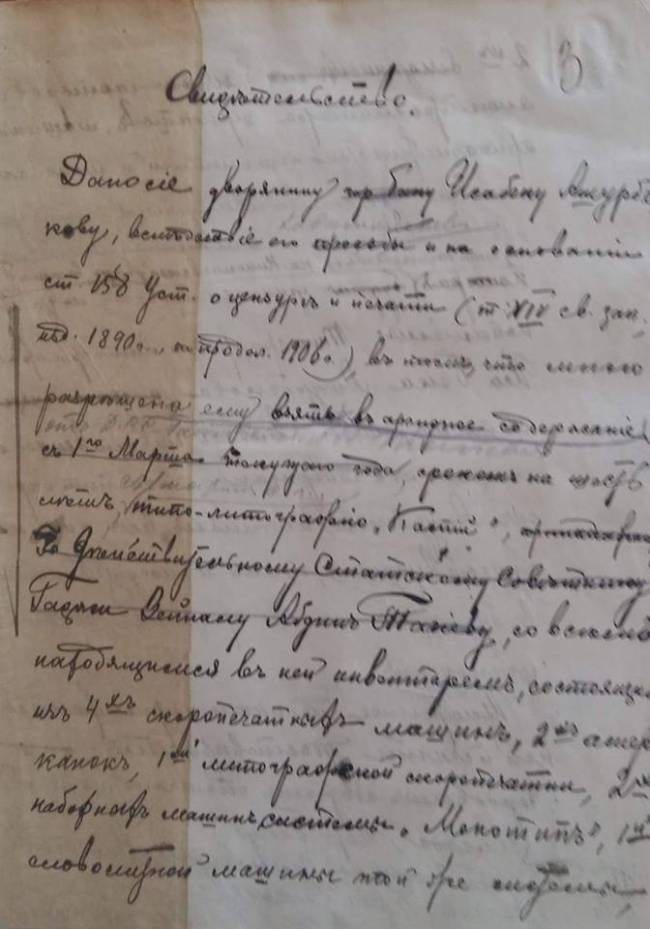 3
Свидѣтельство.
Дано сіе дворянину Исабеку Ашурбе
кову, вслѣдствіе его просьбы и на основаніи
ст. 158 Уст. о цензурѣ и печати (т. XIV св. зак.
изд. 1890 г., по продол. 1906 г.), въ томъ что мною
разрѣшено ему взять въ арендное содержаніе
съ 1го Марта текущаго года, срокомъ на шесть
лѣтъ, типо-литографію „Каспій",
Дѣйствительному Статскому Совѣтнику
Гаджи Зейналу Абдинъ Тагіеву, со всѣмъ
находящимся въ ней инвентаремъ, состоящим
изъ 4хъ скоропечатныхъ машинъ, 2хъ амери
канокъ, 1ой литографской скоропечатни, 2хъ
наборныхъ машинъ системы „Монотипъ", 1ой
словолитной машины той же системы,